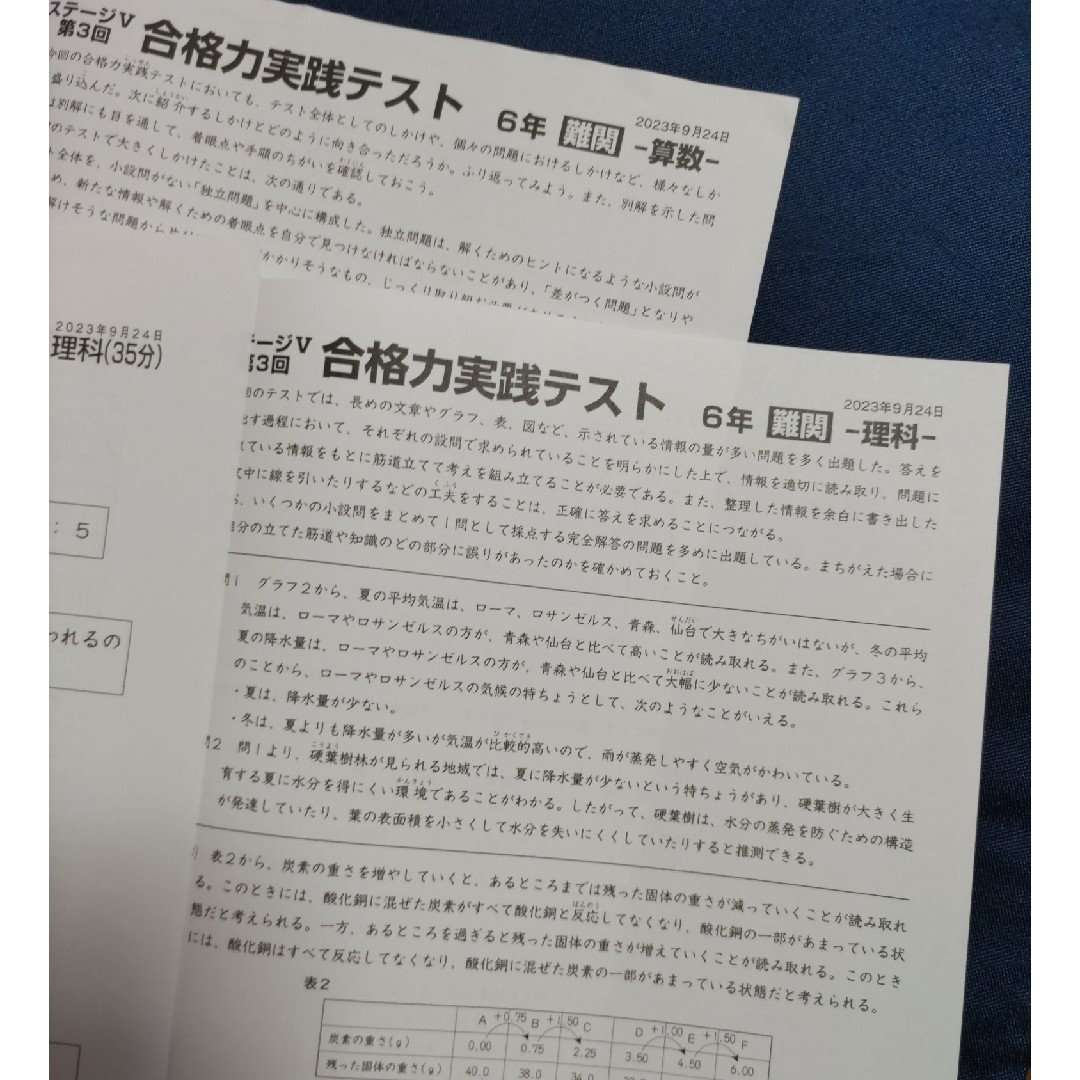 ステージⅤ
第3回
合格力実践テスト
6年 難関 -算数-
2023年9月24日
今回の合格力実践テストにおいても、テスト全体としてのしかけや、個々の問題におけるしかけなど、様々なしか
盛り込んだ。次に紹介するしかけとどのように向き合っただろうか。ふり返ってみよう。また、別解を示した問
は別解にも目を通して、着眼点や手順のちがいを確認しておこう。
のテストで大きくしかけたことは、次の通りである。
ト全体を、小設問がない「独立問題」を中心に構成した。独立問題は、解くためのヒントになるような小設問が
め、新たな情報や解くための着眼点を自分で見つけなければならないことがあり、「差がつく問題」となりや
解けそうな問題から
かかりそうなもの、じっくり取り組む
2023年9月24日
理科(35分)
:5
われるの
ージⅤ
第3回
合格力実践テスト
6年 難関 -理科-
2023年9月24日
回のテストでは、長めの文章やグラフ、表、図など、示されている情報の量が多い問題を多く出題した。答えを
出す過程において、それぞれの設問で求められていることを明らかにした上で、情報を適切に読み取り、問題に
ている情報をもとに筋道立てて考えを組み立てることが必要である。また、整理した情報を余白に書き出した
中に線を引いたりするなどの工夫をすることは、正確に答えを求めることにつながる。
、いくつかの小設問をまとめて1問として採点する完全解答の問題を多めに出題している。まちがえた場合に
自分の立てた筋道や知識のどの部分に誤りがあったのかを確かめておくこと。
問1 グラフ2から、夏の平均気温は、ローマ、ロサンゼルス、青森、仙台で大きなちがいはないが、冬の平均
気温は、ローマやロサンゼルスの方が、青森や仙台と比べて高いことが読み取れる。また、グラフ3から、
夏の降水量は、ローマやロサンゼルスの方が、青森や仙台と比べて大幅に少ないことが読み取れる。これら
のことから、ローマやロサンゼルスの気候の特ちょうとして、次のようなことがいえる。
・夏は、降水量が少ない。
・冬は、夏よりも降水量が多いが気温が比較的高いので、雨が蒸発しやすく空気がかわいている。
問2 問1より、硬葉樹林が見られる地域では、夏に降水量が少ないという特ちょうがあり、硬葉樹が大きく生
育する夏に水分を得にくい環境であることがわかる。したがって、硬葉樹は、水分の蒸発を防ぐための構造
が発達していたり、葉の表面積を小さくして水分を失いにくくしていたりすると推測できる。
) 表2から、炭素の重さを増やしていくと、あるところまでは残った固体の重さが減っていくことが読み取れ
る。このときには、酸化銅に混ぜた炭素がすべて酸化銅と反応してなくなり、酸化銅の一部があまっている状
態だと考えられる。一方、あるところを過ぎると残った固体の重さが増えていくことが読み取れる。このとき
には、酸化銅はすべて反応してなくなり、酸化銅に混ぜた炭素の一部があまっている状態だと考えられる。
表2
A +0.75 B +1.50 C D +1.00 E +1.50 F
炭素の重さ(g) 0.00 0.75 2.25 3.50 4.50 6.00
残った固体の重さ(g) 40.0 38.0 34.0